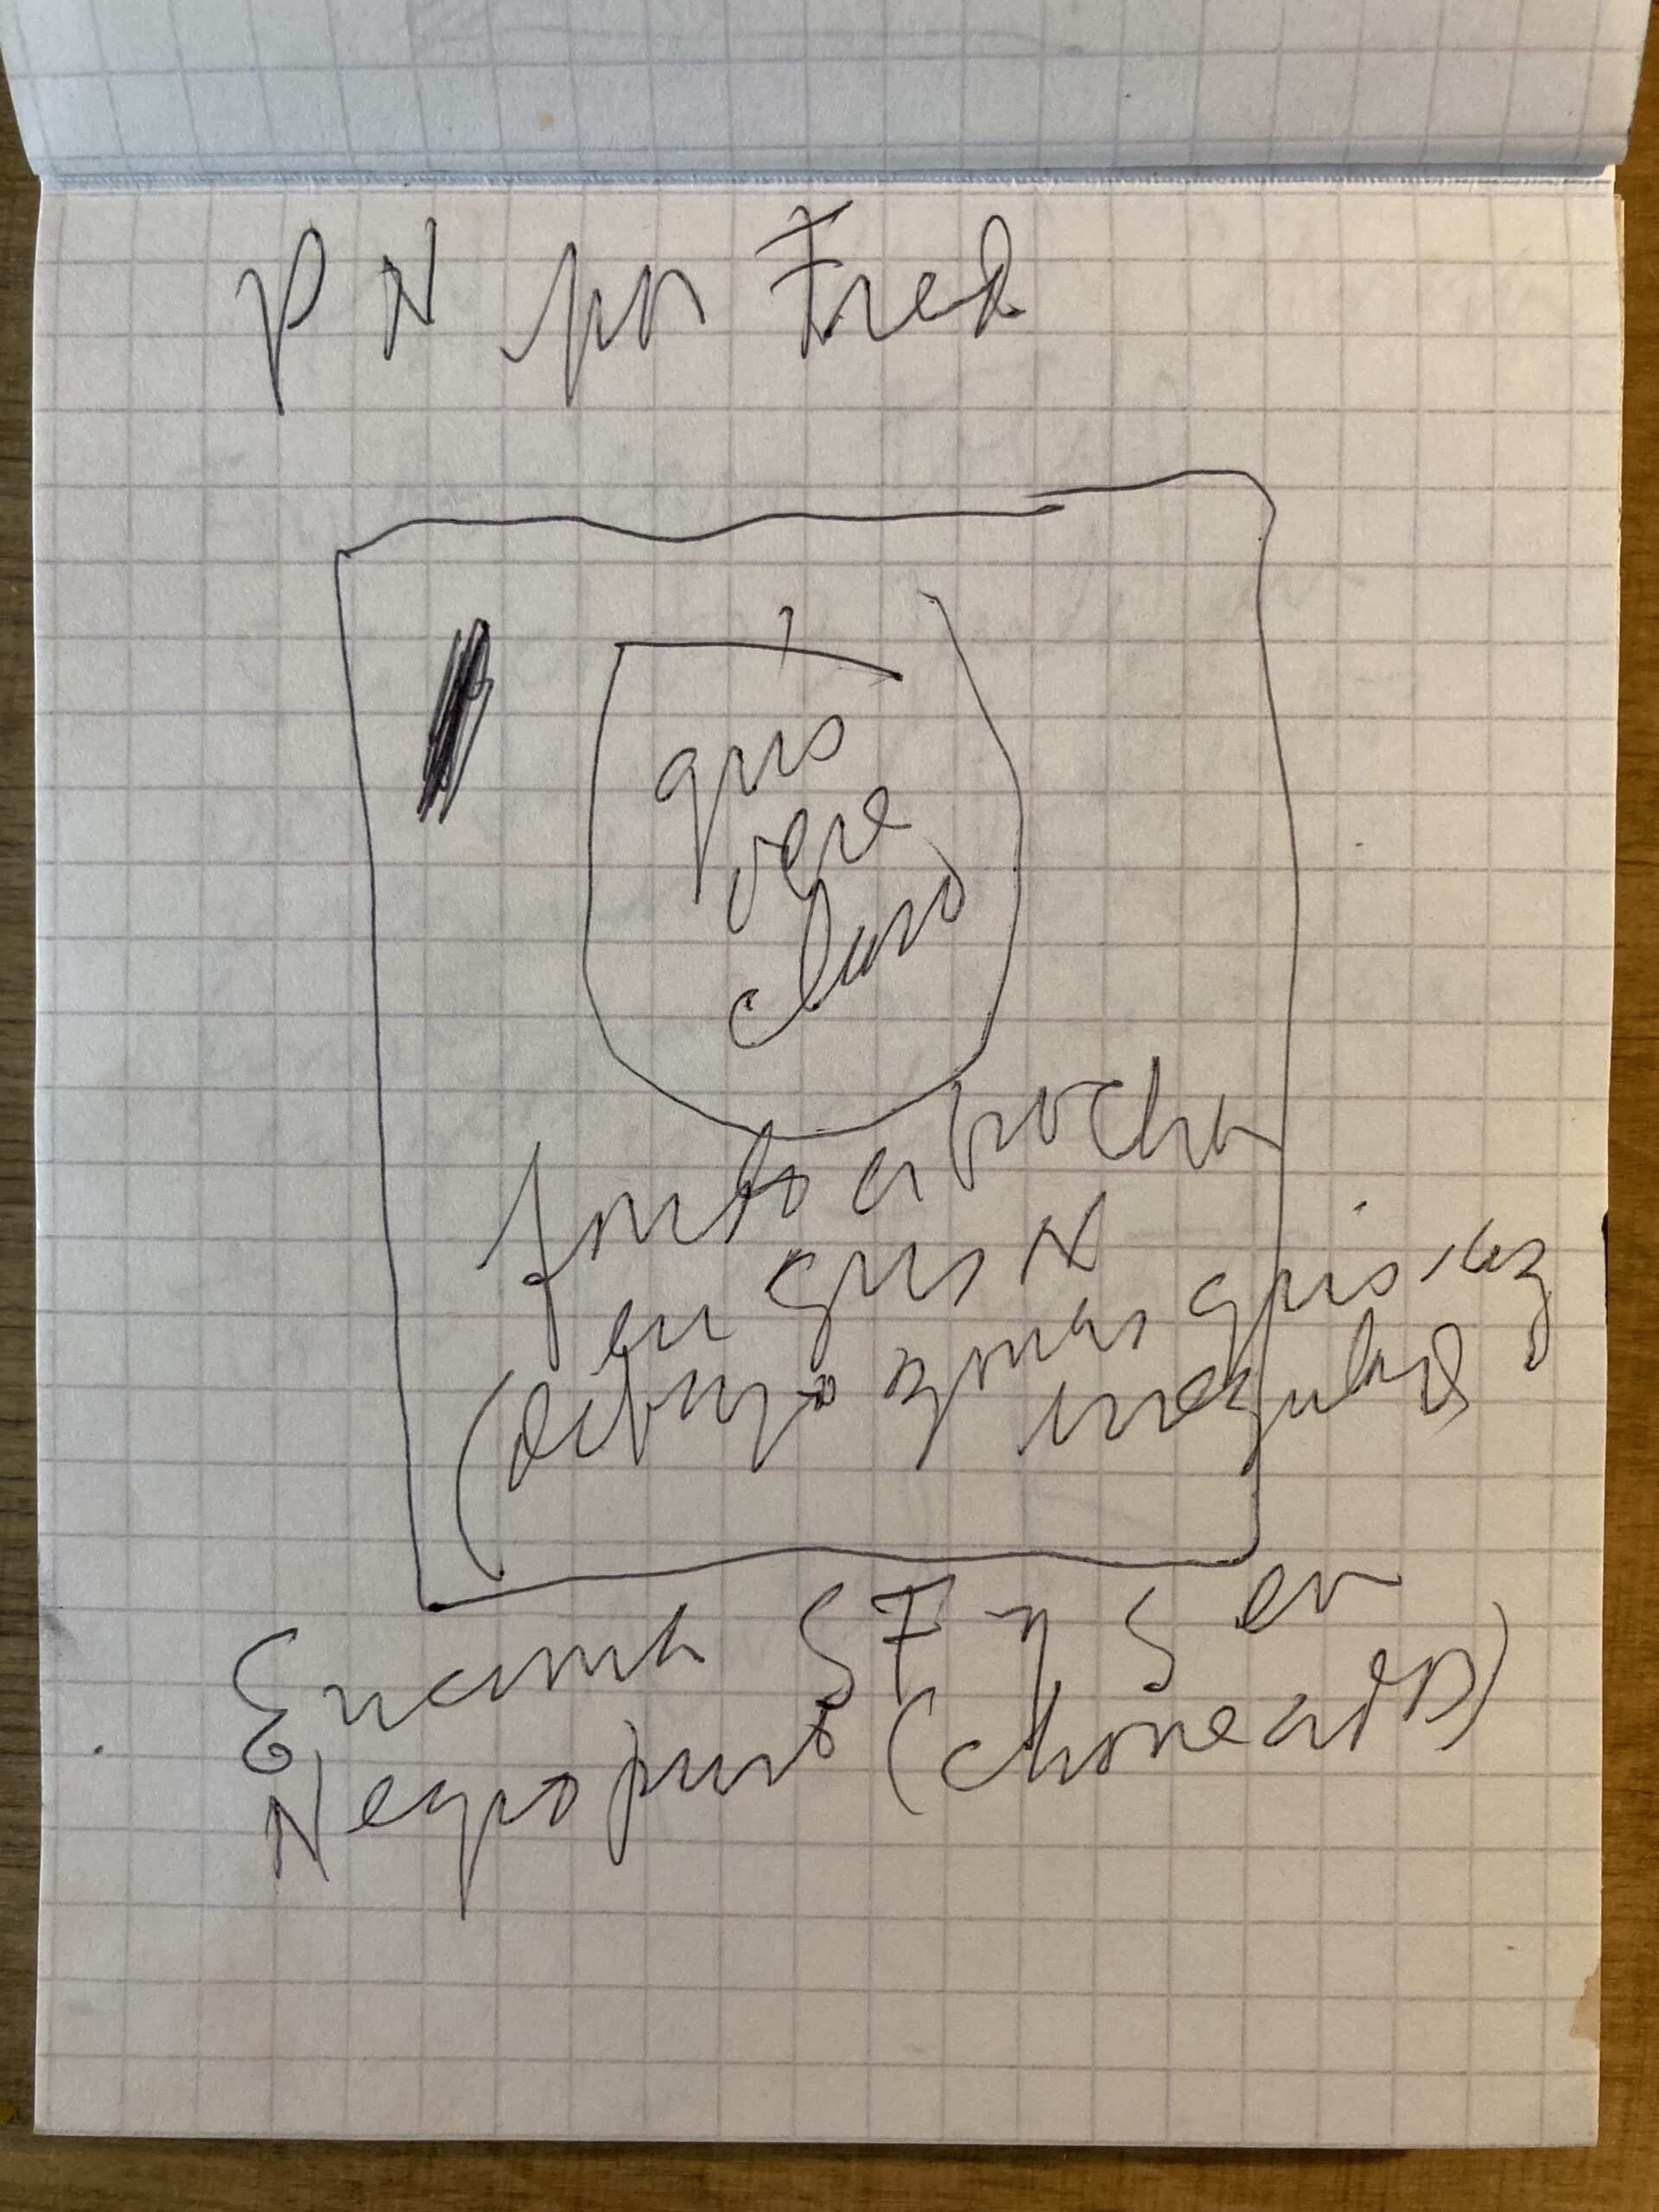 P N por Fred
gris
claro
fondo a brocha
en gris N
(dibujo zonas gris
irregulares
Encima SF y S en
Negro puro (choreados)